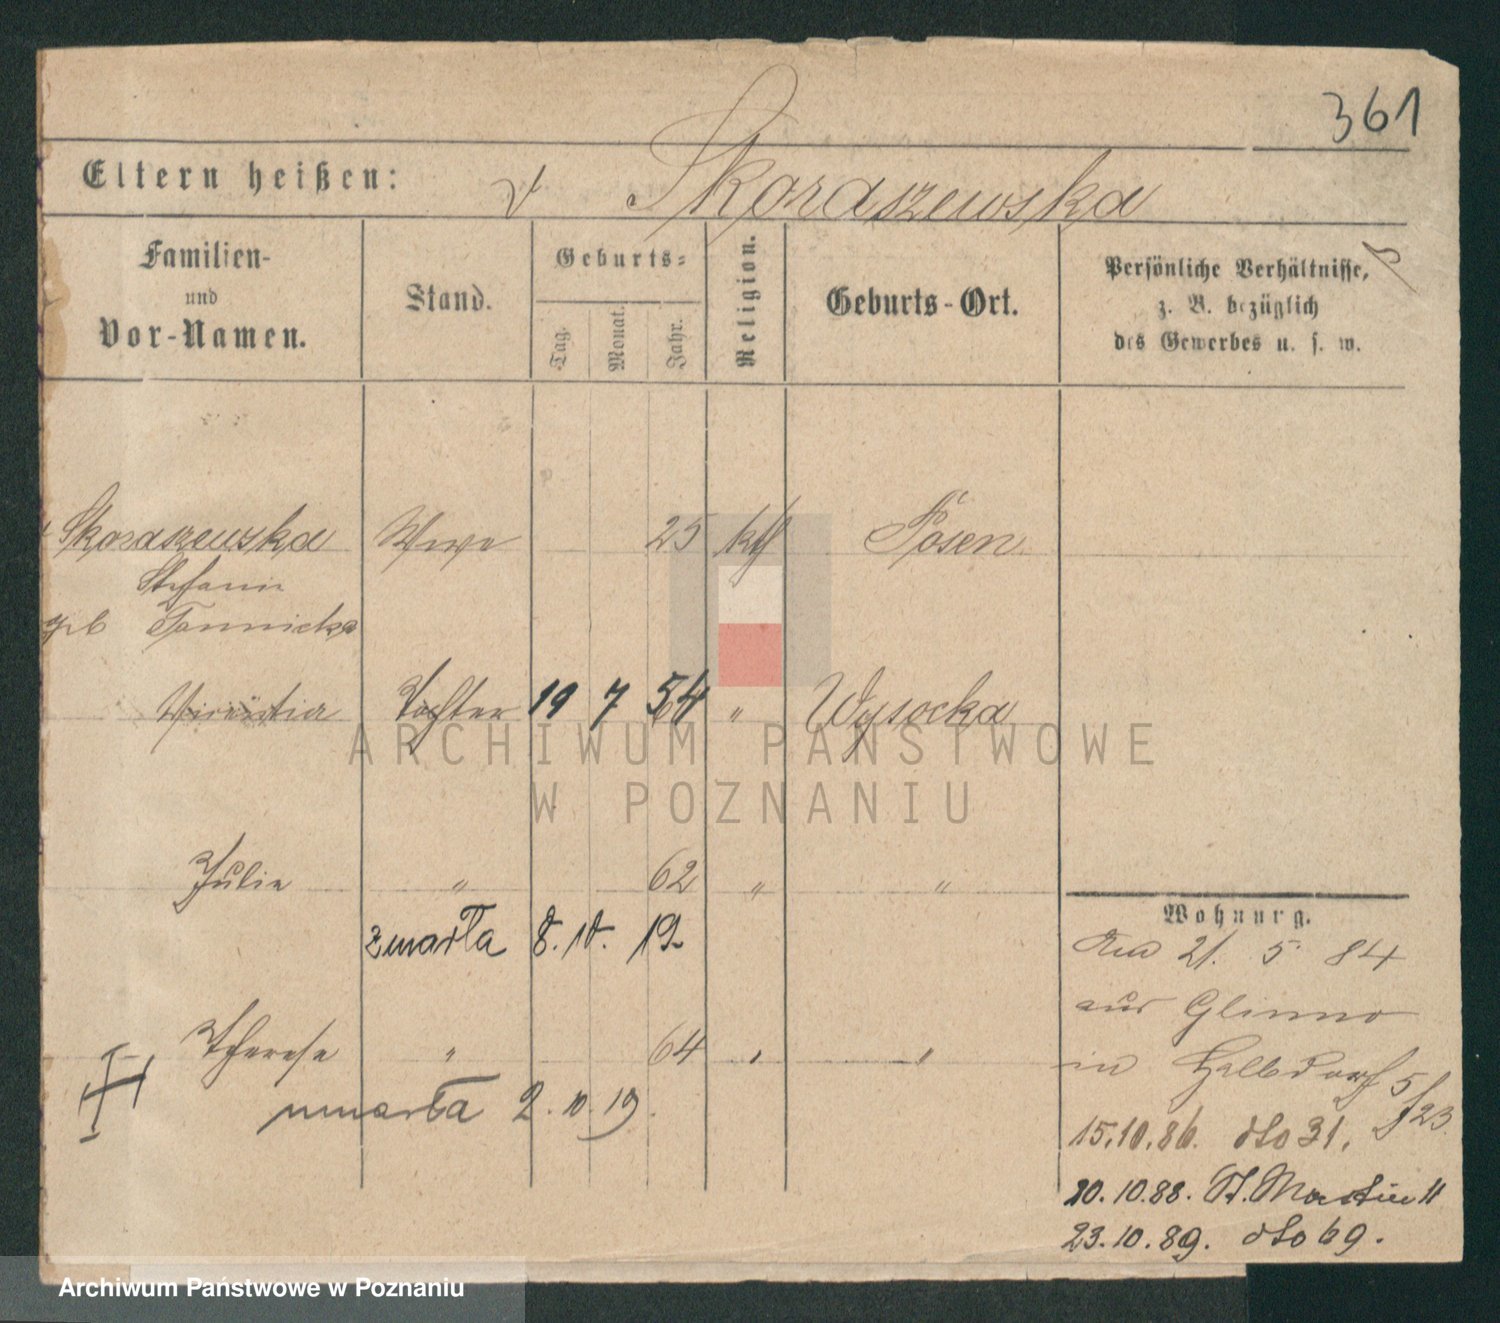 361
Eltern heißen: v Skoraszewska
Familien- und Vor-Namen.
Stand.
Geburts=
Tag.
Monat.
Jahr.
Religion.
Geburts-Ort.
Persönliche Verhältnisse,
z. B. bezüglich
des Gewerbes u. s. w.
Skoraszewska Wwe 25 kth Posen
Stefanie
geb
Tochter 19 7 54 " Wysocka
Julie " 62 " "
zmarła 8. 10. 19
Therese " 64 " "
umarła 2. 10. 19.
Wohnung.
21. 5. 84
aus Glinno
in Halbdorf 5
J 23
15.10.86. dto 31.
20.10.88. St. Martin 11
23.10.89. dto 69.
ARCHIWUM PAŃSTWOWE
W POZNANIU
Archiwum Państwowe w Poznaniu